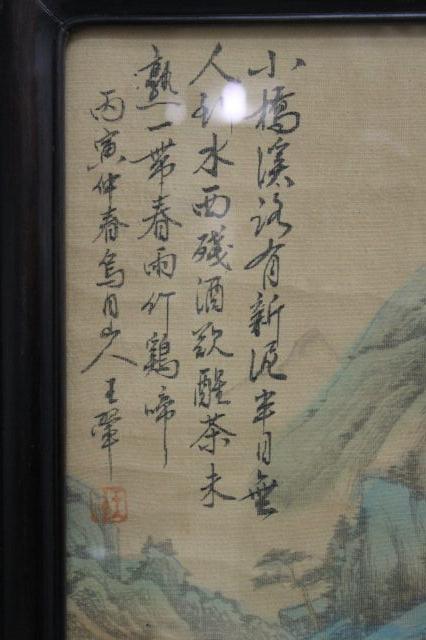 小橋溪路有新泥半日無
人到水西殘酒欲醒茶未
熟一帶春雨竹鷄啼
丙寅仲春烏目山人王翬